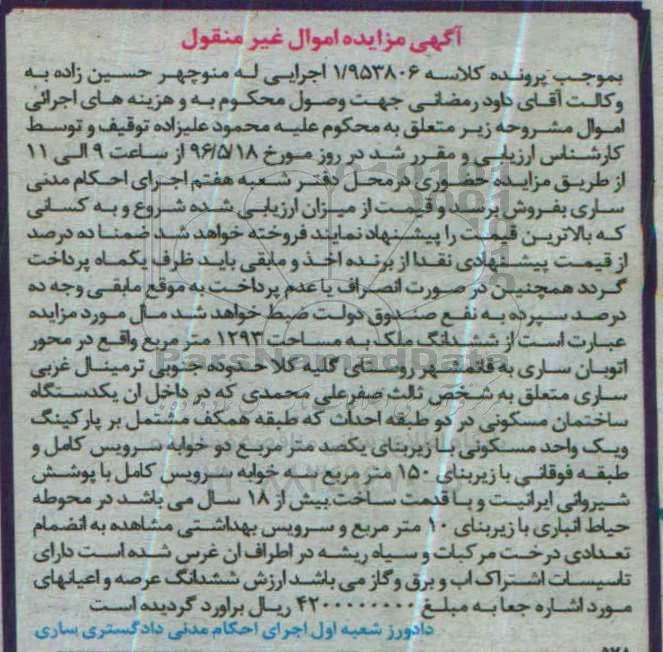 آگهی مزایده اموال غیر منقول
بموجب پرونده کلاسه ۱/۹۵۳۸۰۶ اجرایی له منوچهر حسین زاده به
وکالت آقای داود رمضانی جهت وصول محکوم به و هزینه های اجرائی
اموال مشروحه زیر متعلق به محکوم علیه محمود علیزاده توقیف و توسط
کارشناس ارزیابی و مقرر شد در روز مورخ ۹۶/۵/۱۸ از ساعت ۹ الی ۱۱
از طریق مزایده حضوری درمحل دفتر شعبه هفتم اجرای احکام مدنی
ساری بفروش برسد و قیمت از میزان ارزیابی شده شروع و به کسانی
که بالاترین قیمت را پیشنهاد نمایند فروخته خواهد شد ضمنا ده درصد
از قیمت پیشنهادی نقدا از برنده اخذ و مابقی باید ظرف یکماه پرداخت
گردد همچنین در صورت انصراف یا عدم پرداخت به موقع مابقی وجه ده
درصد سپرده به نفع صندوق دولت ضبط خواهد شد مال مورد مزایده
عبارت است از ششدانگ ملک به مساحت ۱۲۹۳ متر مربع واقع در محور
اتوبان ساری به قائمشهر روستای گلیه کلا حدوده جنوبی ترمینال غربی
ساری متعلق به شخص ثالث صفرعلی محمدی که در داخل ان یکدستگاه
ساختمان مسکونی در دو طبقه احداث که طبقه همکف مشتمل بر پارکینگ
ویک واحد مسکونی با زیربنای یکصد متر مربع دو خوابه سرویس کامل و
طبقه فوقانی با زیربنای ۱۵۰ متر مربع سه خوابه سرویس کامل با پوشش
شیروانی ایرانیت و با قدمت ساخت بیش از ۱۸ سال می باشد در محوطه
حیاط انباری با زیربنای ۱۰ متر مربع و سرویس بهداشتی مشاهده به انضمام
تعدادی درخت مرکبات و سیاه ریشه در اطراف ان غرس شده است دارای
تاسیسات اشتراک اب و برق و گاز می باشد ارزش ششدانگ عرصه و اعیانهای
مورد اشاره جعا به مبلغ ۴۲۰۰۰۰۰۰۰۰۰ ریال براورد گردیده است
دادورز شعبه اول اجرای احکام مدنی دادگستری ساری
ParsNamadData